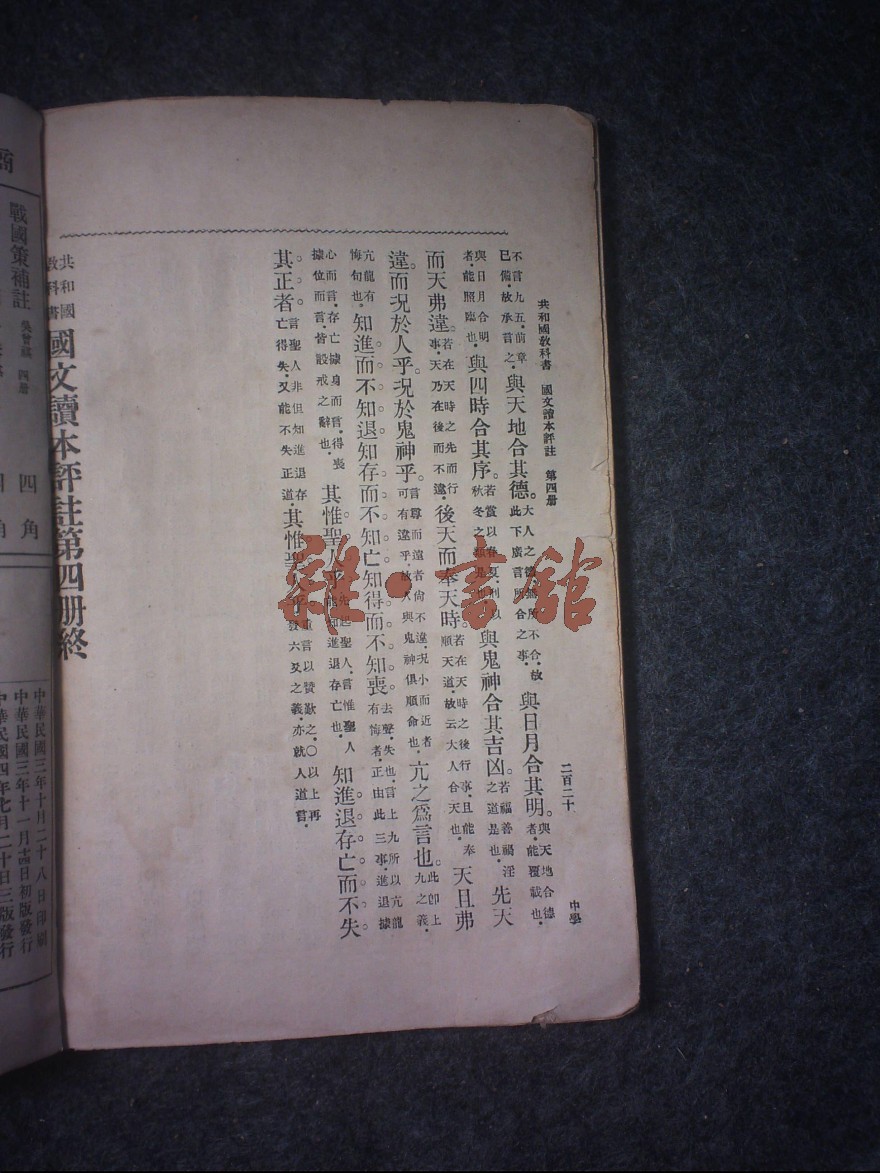 共和國教科書 國文讀本評註 第四册 二百二十 中學
不言九五·前章
已備·故承言之·
與天地合其德。
大人之德·無所不合·故
此下廣言所合之事·
與日月合其明。
與天地合德
者·能覆載也·
與日月合明
者·能照臨也·
與四時合其序。
若賞以春夏·刑以
秋冬之類是也·
與鬼神合其吉凶。
若福善禍淫
之道是也·
先天
而天弗違。
若在天時之先而行
事·天乃在後而不違·
後天而奉天時。
若在天時之後行事·且能奉
順天道·故云大人合天也·
天且弗
違。而况於人乎。况於鬼神乎。
言尊而遠者尙不違·况小而近者
可有違乎·故人與鬼神俱順命也·
亢之爲言也。
此卽上
九之義·
亢龍有
悔句也·
知進而不知退。知存而不知亡。知得而不知喪。
去聲·失也·言上九所以亢龍
有悔者·正由此三事·進退據
心而言·存亡據身而言·得喪
據位而言·皆設戒之辭也·
其惟聖人乎。
先起聖人·言惟聖人
能知進退存亡也·
知進退存亡而不失
其正者。
言聖人非但知進退存
亡得失·又能不失正道·
其惟聖人乎。
重言以贊歎之·〇以上再
發六爻之義·亦就人道言·
共和國
教科書
國文讀本評註第四册終
商
戰國策補註 吳曾祺 四册 四角
中華民國三年十月二十八日印刷
中華民國三年十一月 日初版發行
中華民國四年七月二十日三版發行
雜·書館